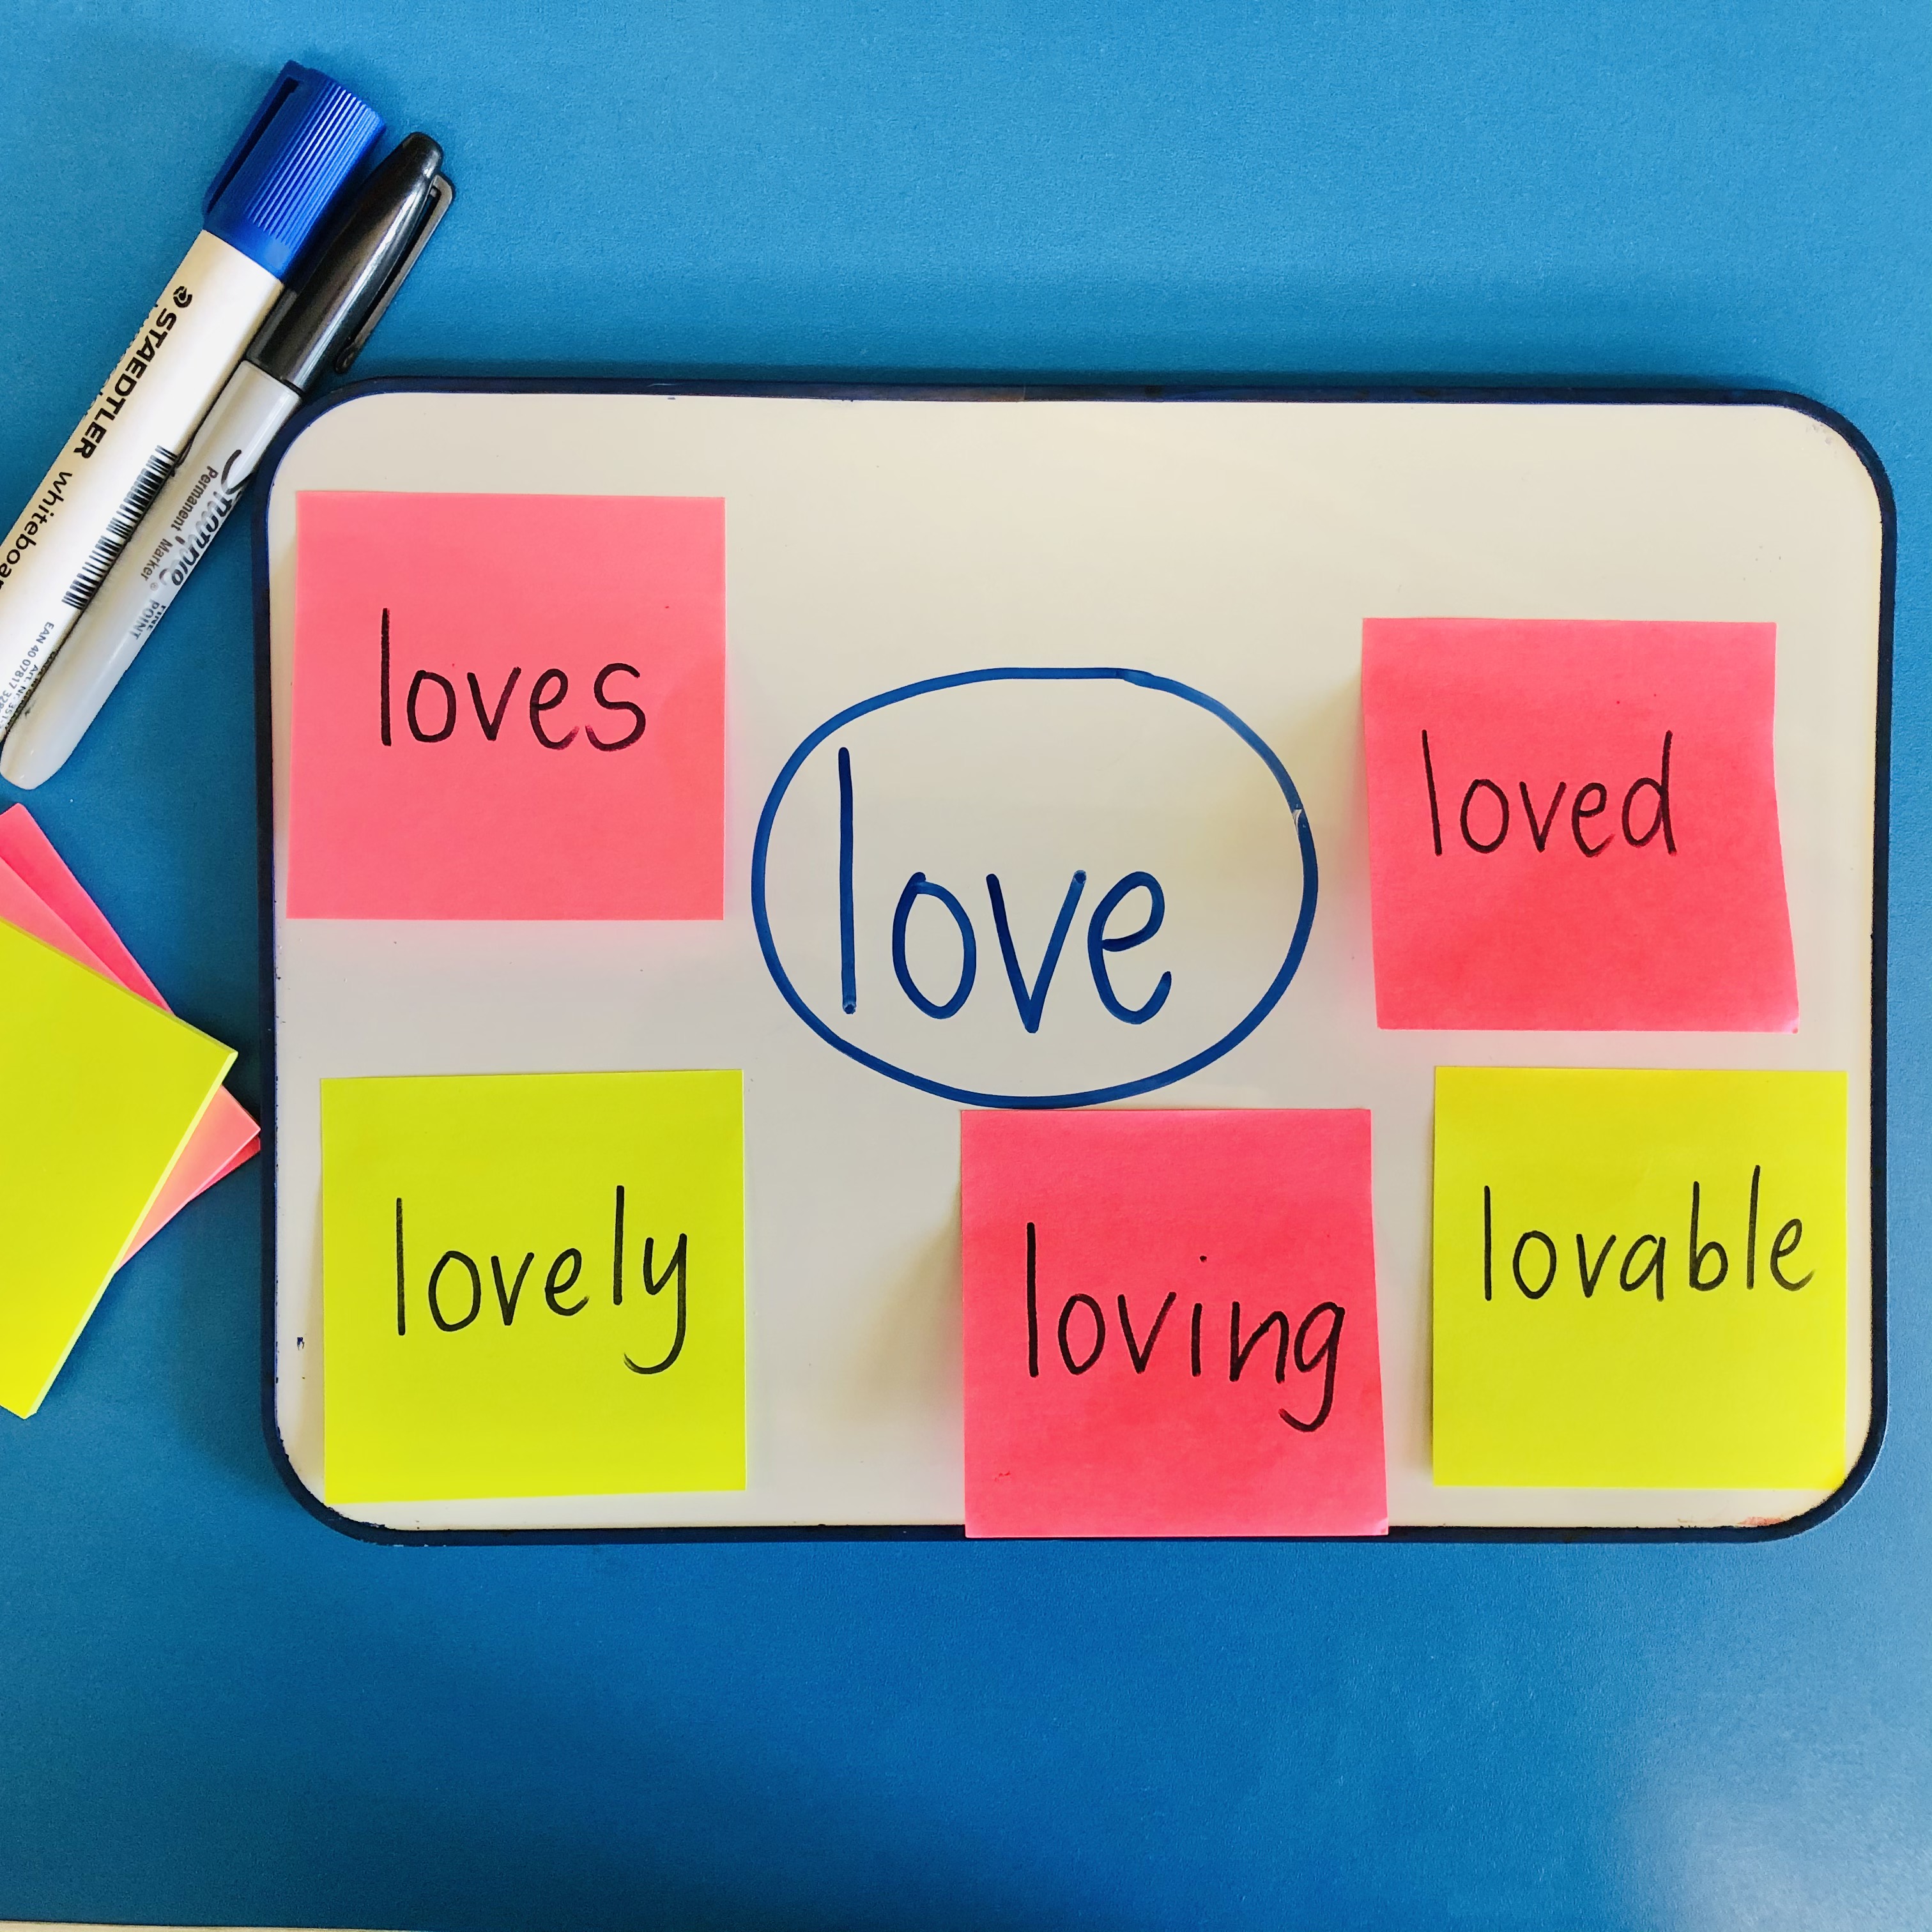 STAEDTLER whiteboar
Sharpie
Permanent Marker
FINE POINT
loves
love
loved
lovely
loving
lovable